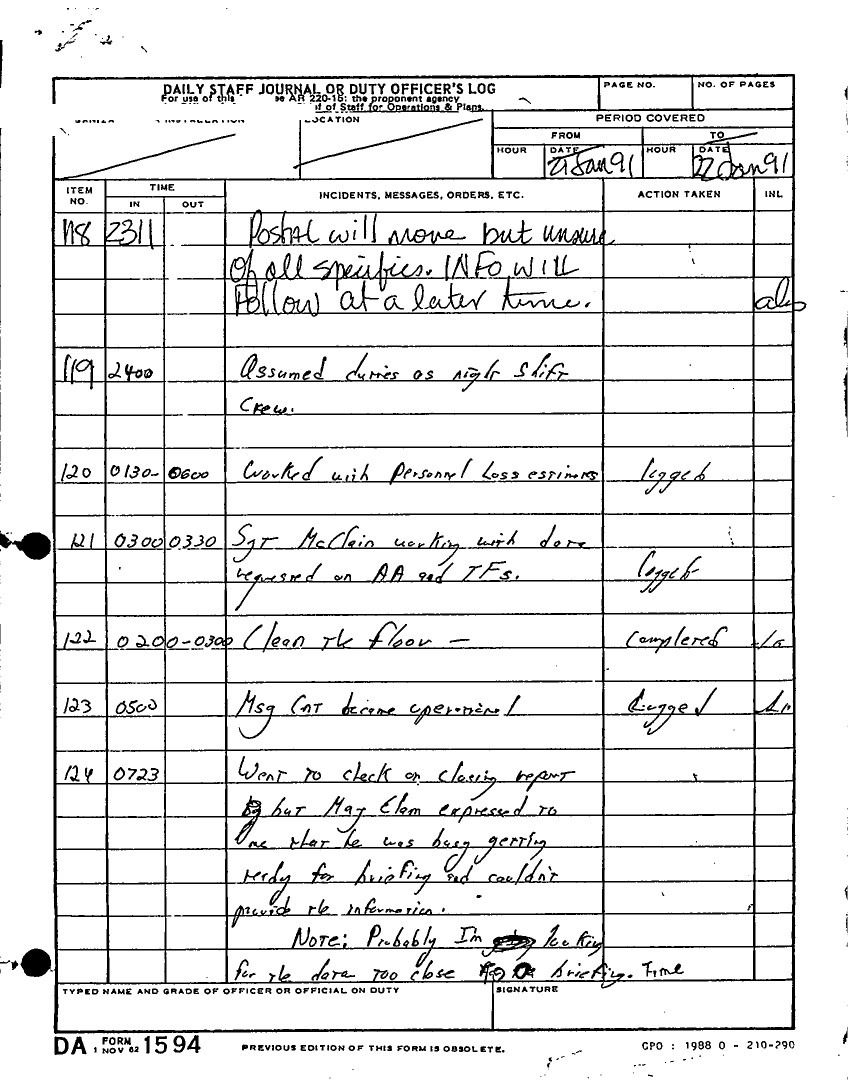 DAILY STAFF JOURNAL OR DUTY OFFICER'S LOG
For use of this se AR 220-15; the proponent agency
if of Staff for Operations & Plans.
PAGE NO.
NO. OF PAGES
LOCATION
PERIOD COVERED
FROM
TO
HOUR
DATE
21 Jan 91
HOUR
DATE
22 Jan 91
ITEM NO.
TIME
IN
OUT
INCIDENTS, MESSAGES, ORDERS, ETC.
ACTION TAKEN
INL
118 2311 Postal will move but unsure
of all specifics. INFO WILL
Follow at a later time.
119 2400 Assumed duties as night shift
crew.
120 0130- 0600 Worked with Personnel Loss estimates logged
121 0300 0330 Sgt McClain working with data
requested on AA and TFs. logged
122 0200-0300 Clean the floor — Completed
123 0500 Msg Cnt became operational Logged
124 0723 Went to check on closing report
but Maj Elam expressed to
me that he was busy getting
ready for briefing and couldn't
provide the information.
Note: Probably I'm looking
for the data too close to briefing. Time
TYPED NAME AND GRADE OF OFFICER OR OFFICIAL ON DUTY
SIGNATURE
DA FORM 1 NOV 62 1594
PREVIOUS EDITION OF THIS FORM IS OBSOLETE.
GPO : 1988 O - 210-290